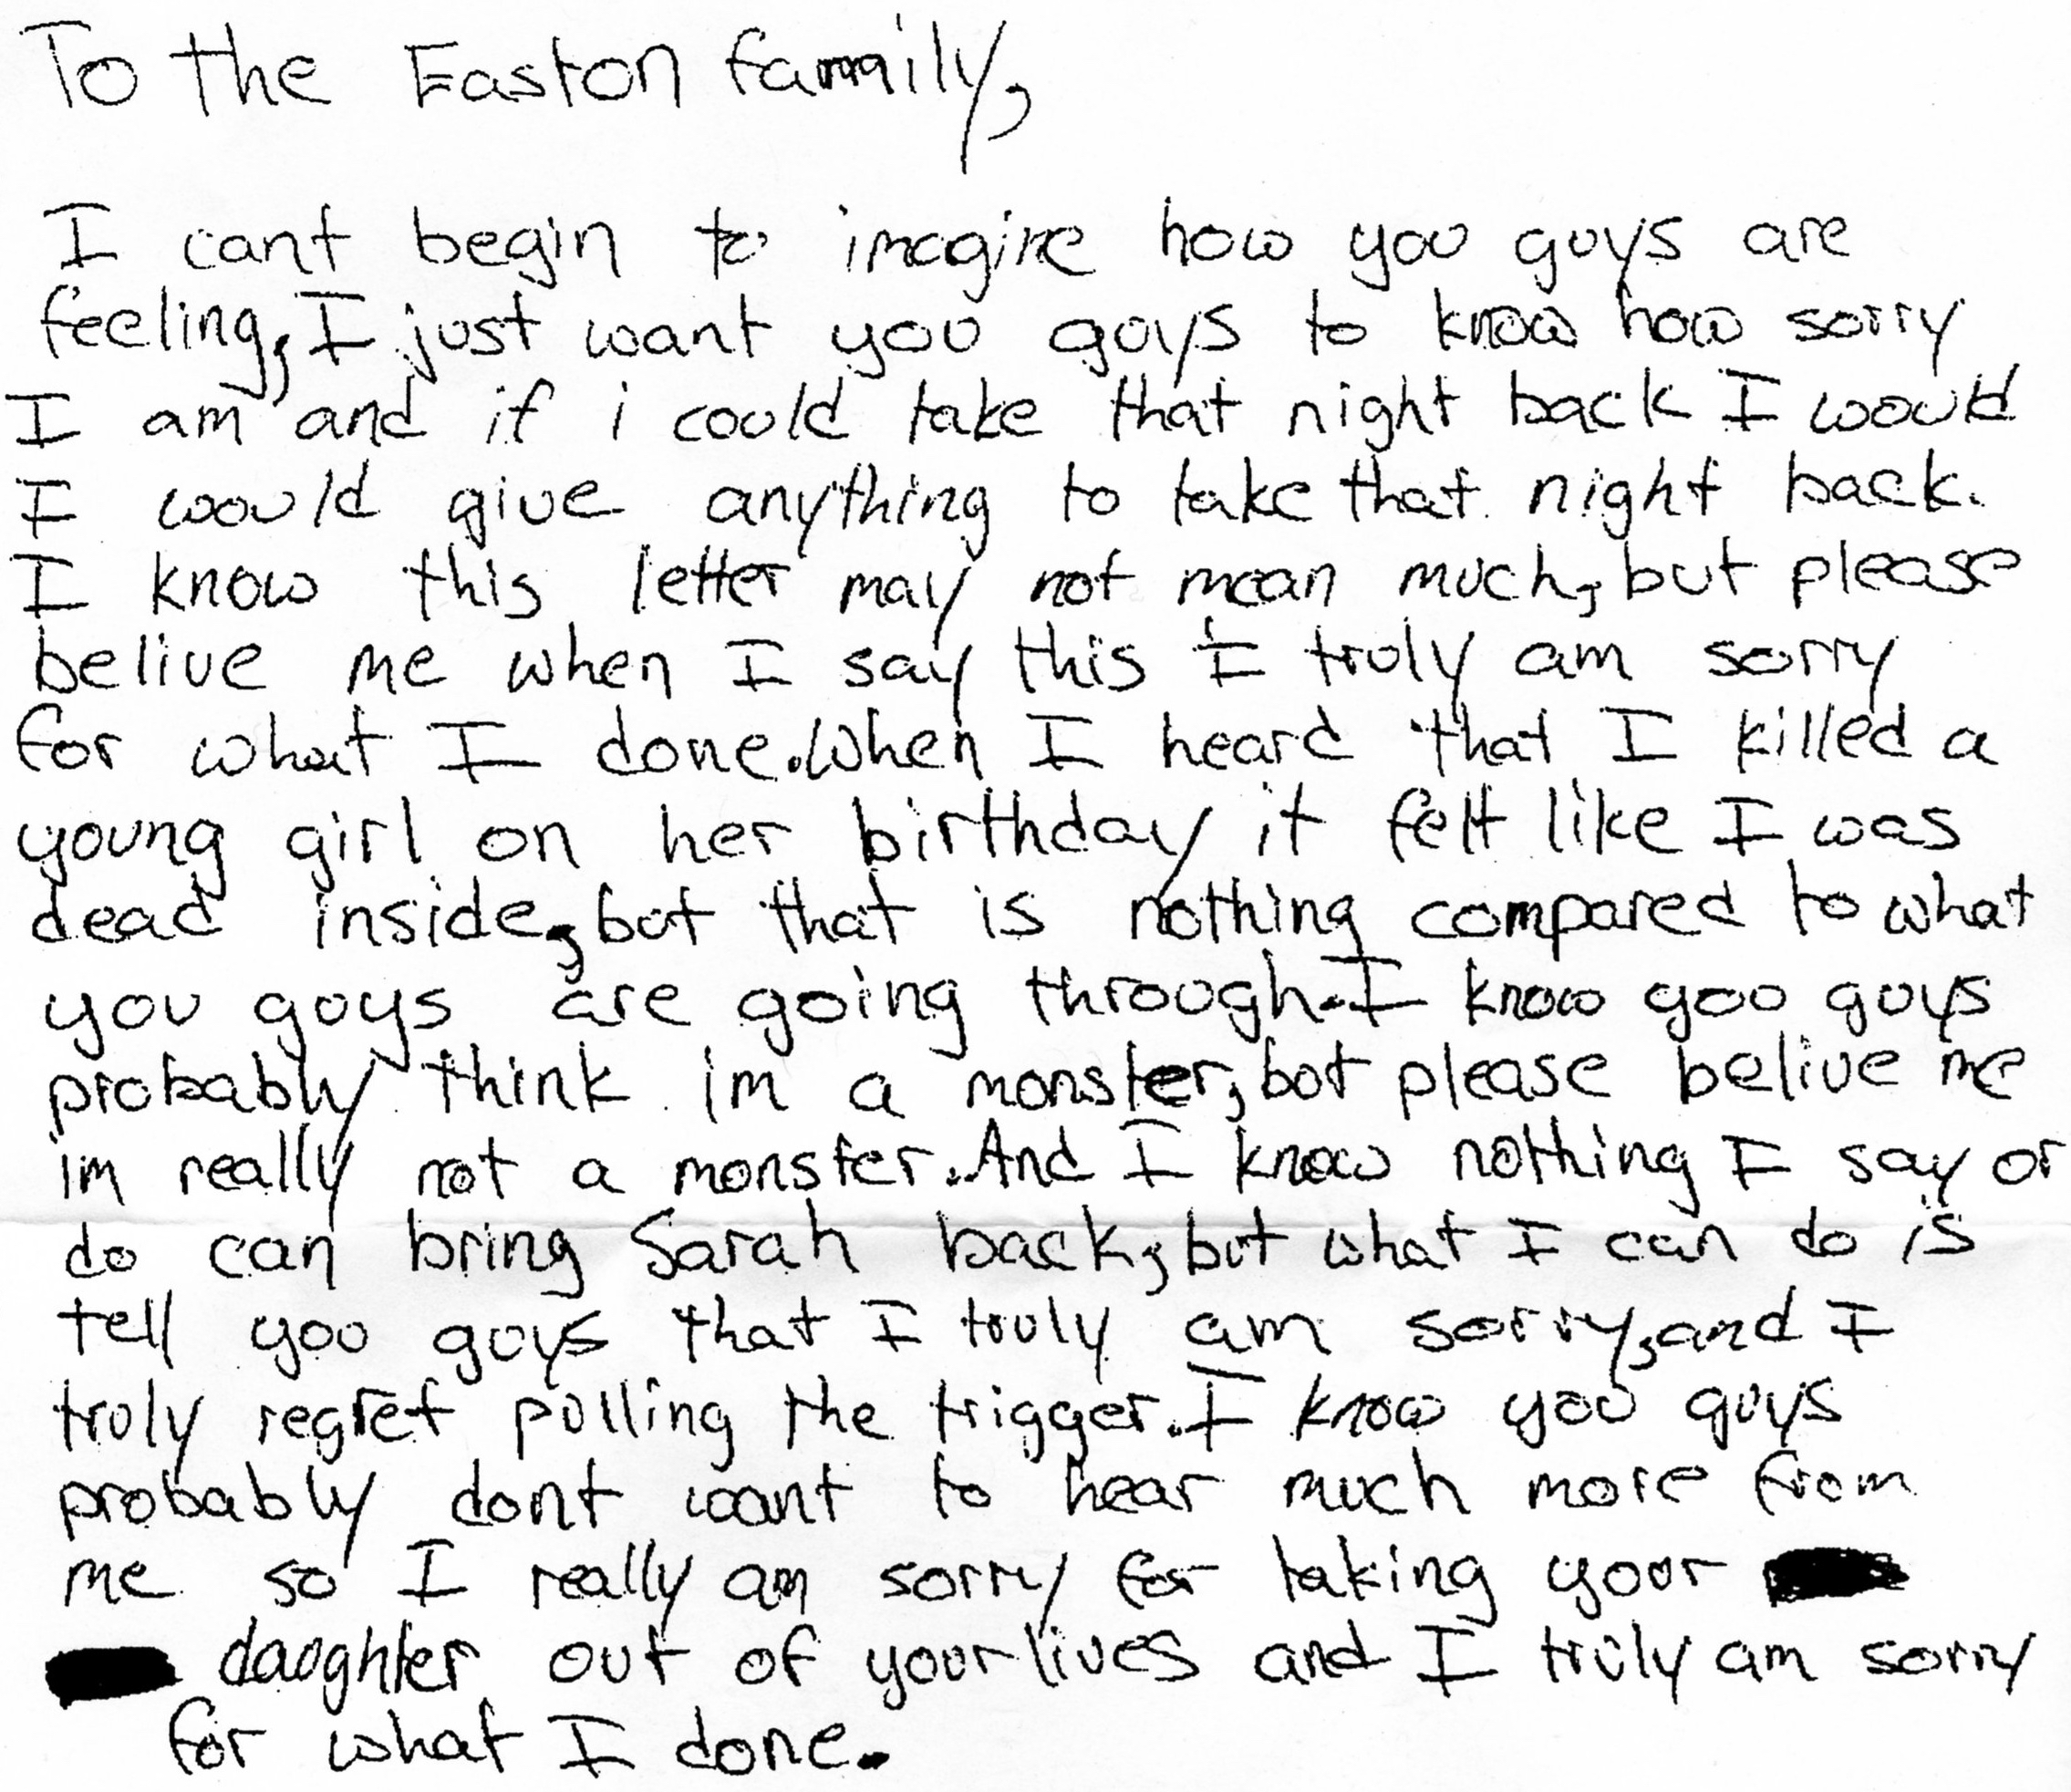 To the Easton family,
I cant begin to imagine how you guys are
feeling, I just want you guys to know how sorry
I am and if i could take that night back I would
I would give anything to take that night back.
I know this letter may not mean much, but please
belive me when I say this I truly am sorry
for what I done. When I heard that I killed a
young girl on her birthday it felt like I was
dead inside, but that is nothing compared to what
you guys are going through. I know you guys
probably think im a monster, but please belive me
im really not a monster. And I know nothing I say or
do can bring Sarah back, but what I can do is
tell you guys that I truly am sorry, and I
truly regret pulling the trigger. I know you guys
probably dont want to hear much more from
me so I really am sorry for taking your
daughter out of your lives and I truly am sorry
for what I done.